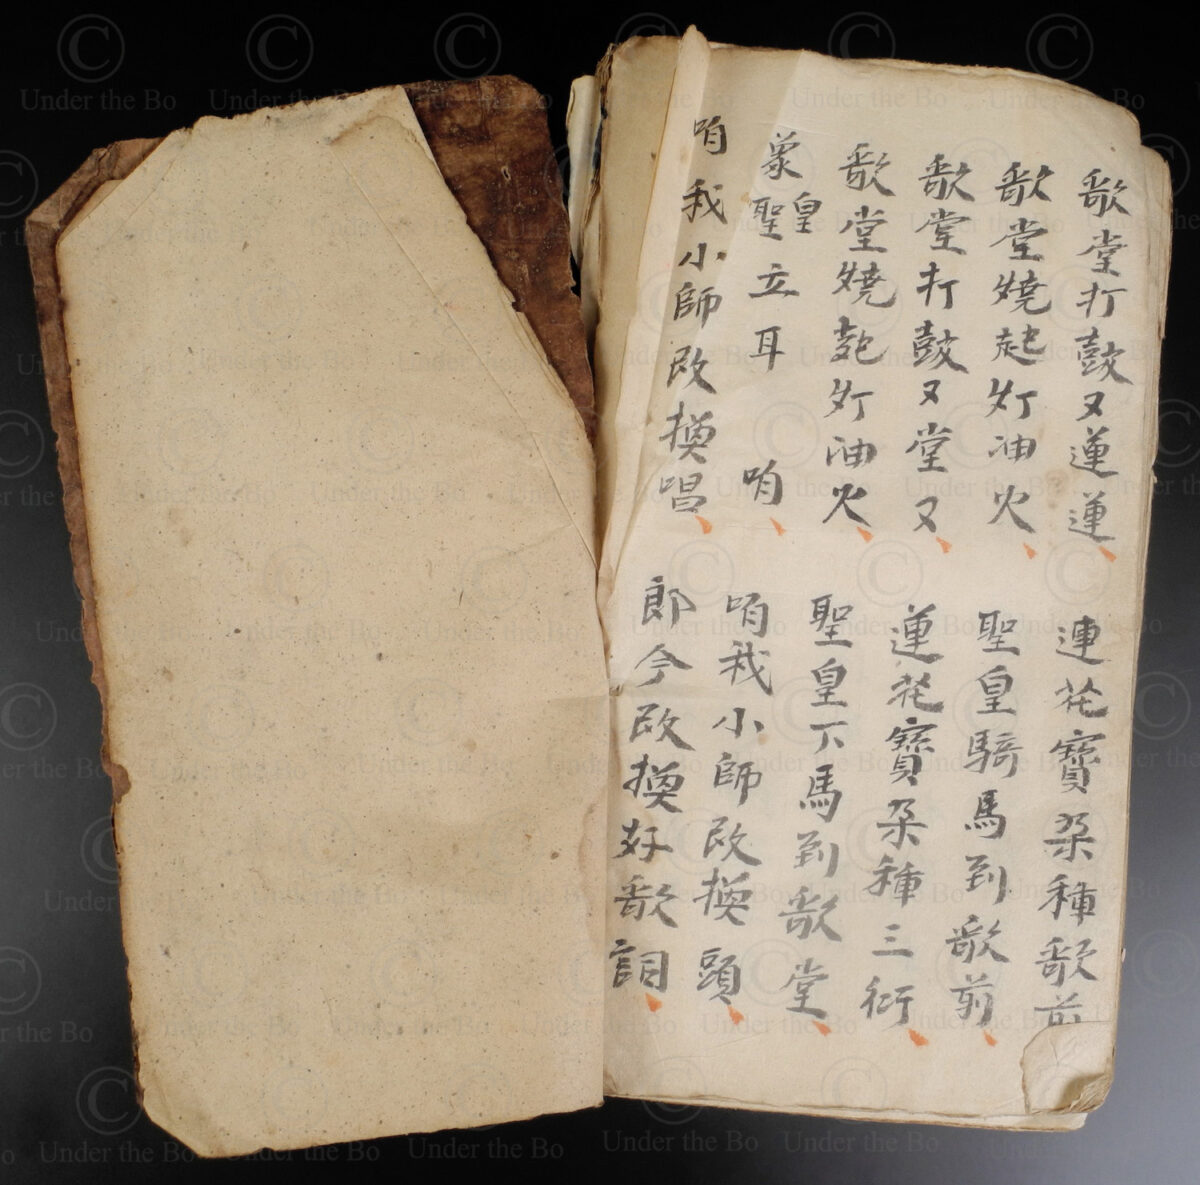 歌堂打鼓又蓮蓮 連花寶朶種歌前
歌堂燒起灯油火 聖皇騎馬到歌前
歌堂打鼓又堂又 蓮花寶朶種三衍
歌堂燒起灯油火 聖皇下馬到歌堂
聖皇立耳 咱 咱我小師改換頭
咱我小師改換唱 郎今改換好歌詞
Under the Bo